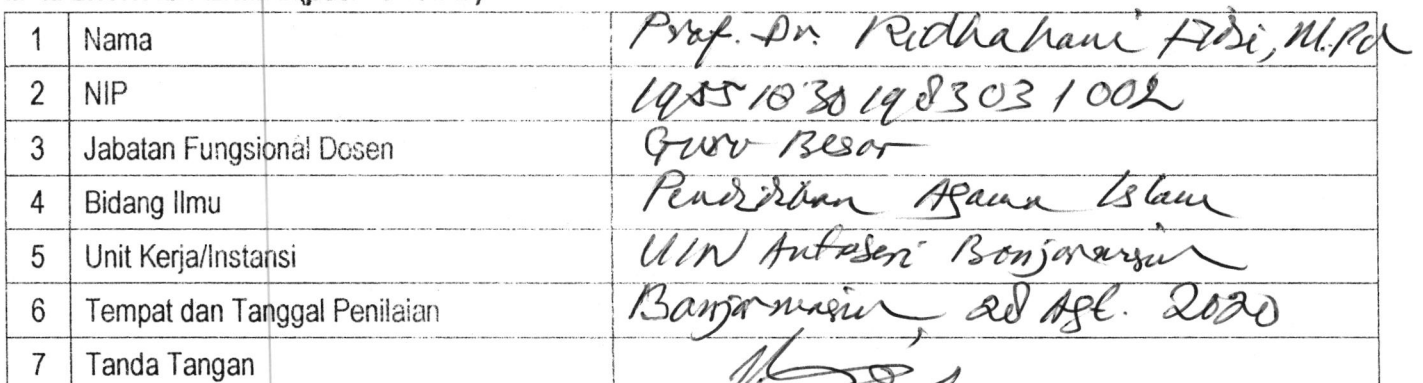 1 Nama Prof. Dr. Ridhahani Fidzi, M.Pd
2 NIP 195510301983031002
3 Jabatan Fungsional Dosen Guru Besar
4 Bidang Ilmu Pendidikan Agama Islam
5 Unit Kerja/Instansi UIN Antasari Banjarmasin
6 Tempat dan Tanggal Penilaian Banjarmasin 28 Agt. 2020
7 Tanda Tangan